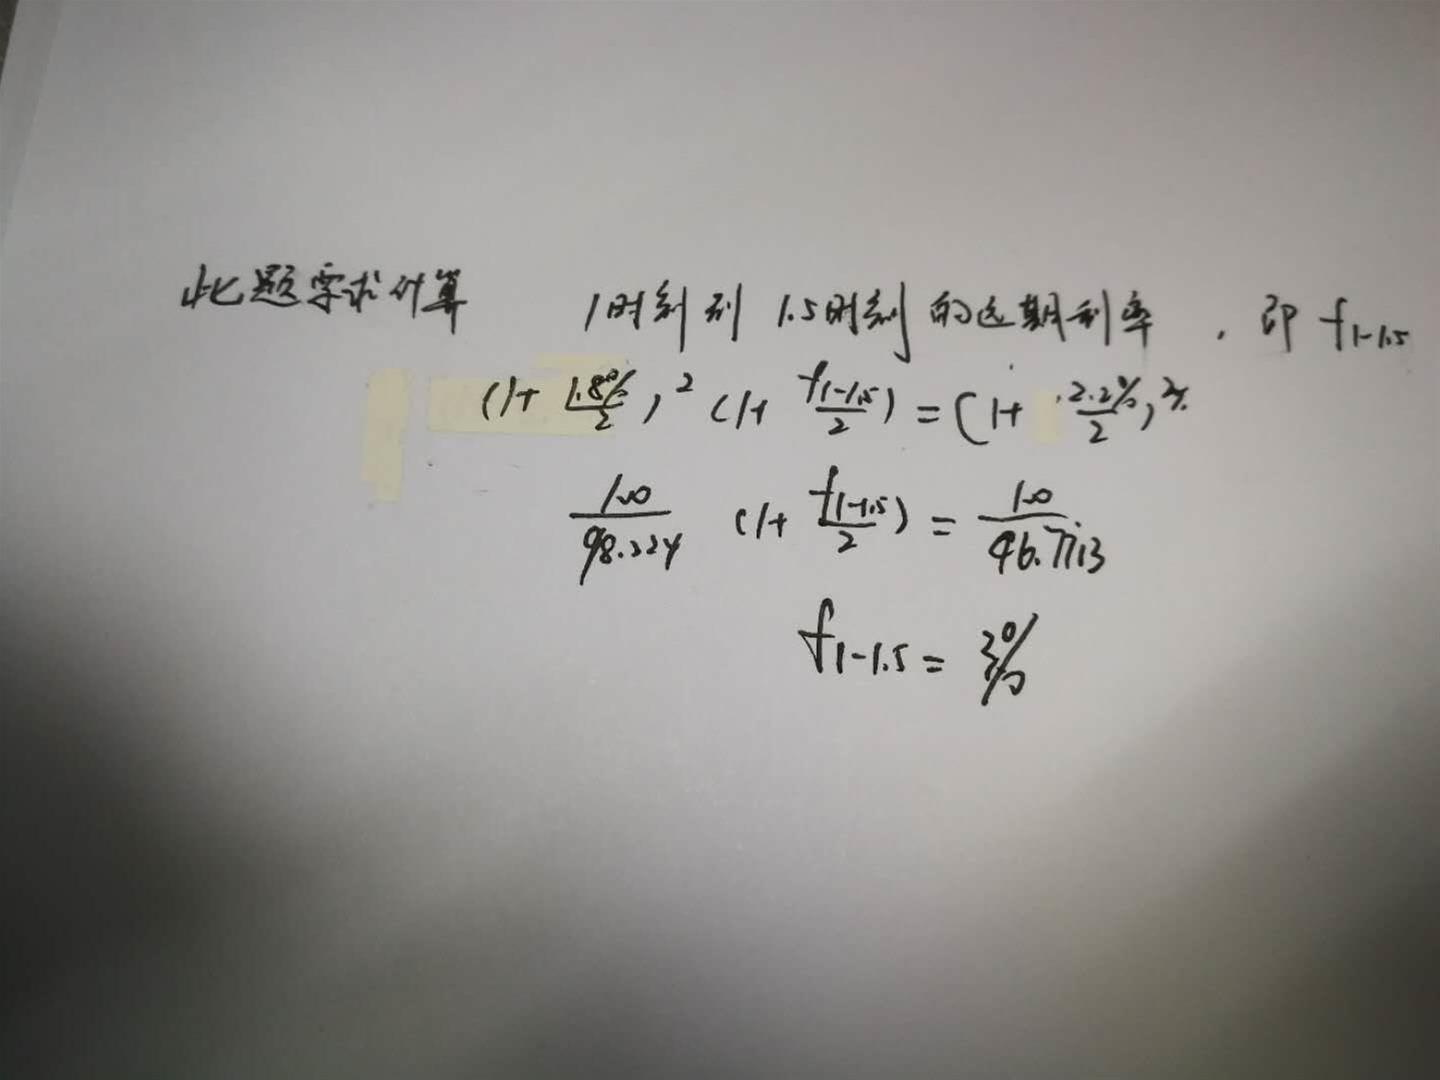 此题需求计算 1时刻到1.5时刻的远期利率, 即 f1-1.5
(1+ 1.8%/2)² (1+ f1-1.5/2) = (1+ 2.2%/2)³
100/98.224 (1+ f1-1.5/2) = 100/96.7713
f1-1.5 = 3%